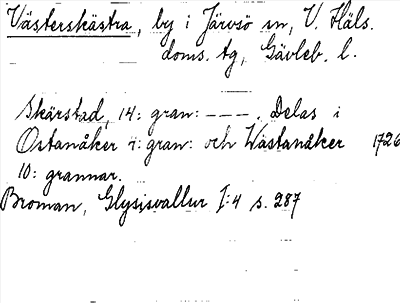 Västerskästra, by i Järvsö sn, V. Häls.
doms. tg, Gävleb. l.
Skärstad, 14: gran: ---. Delas i
Ostanåker 4: gran: och Wästanåker 1726
10: grannar.
Broman, Glysisvallur I:4 s. 287